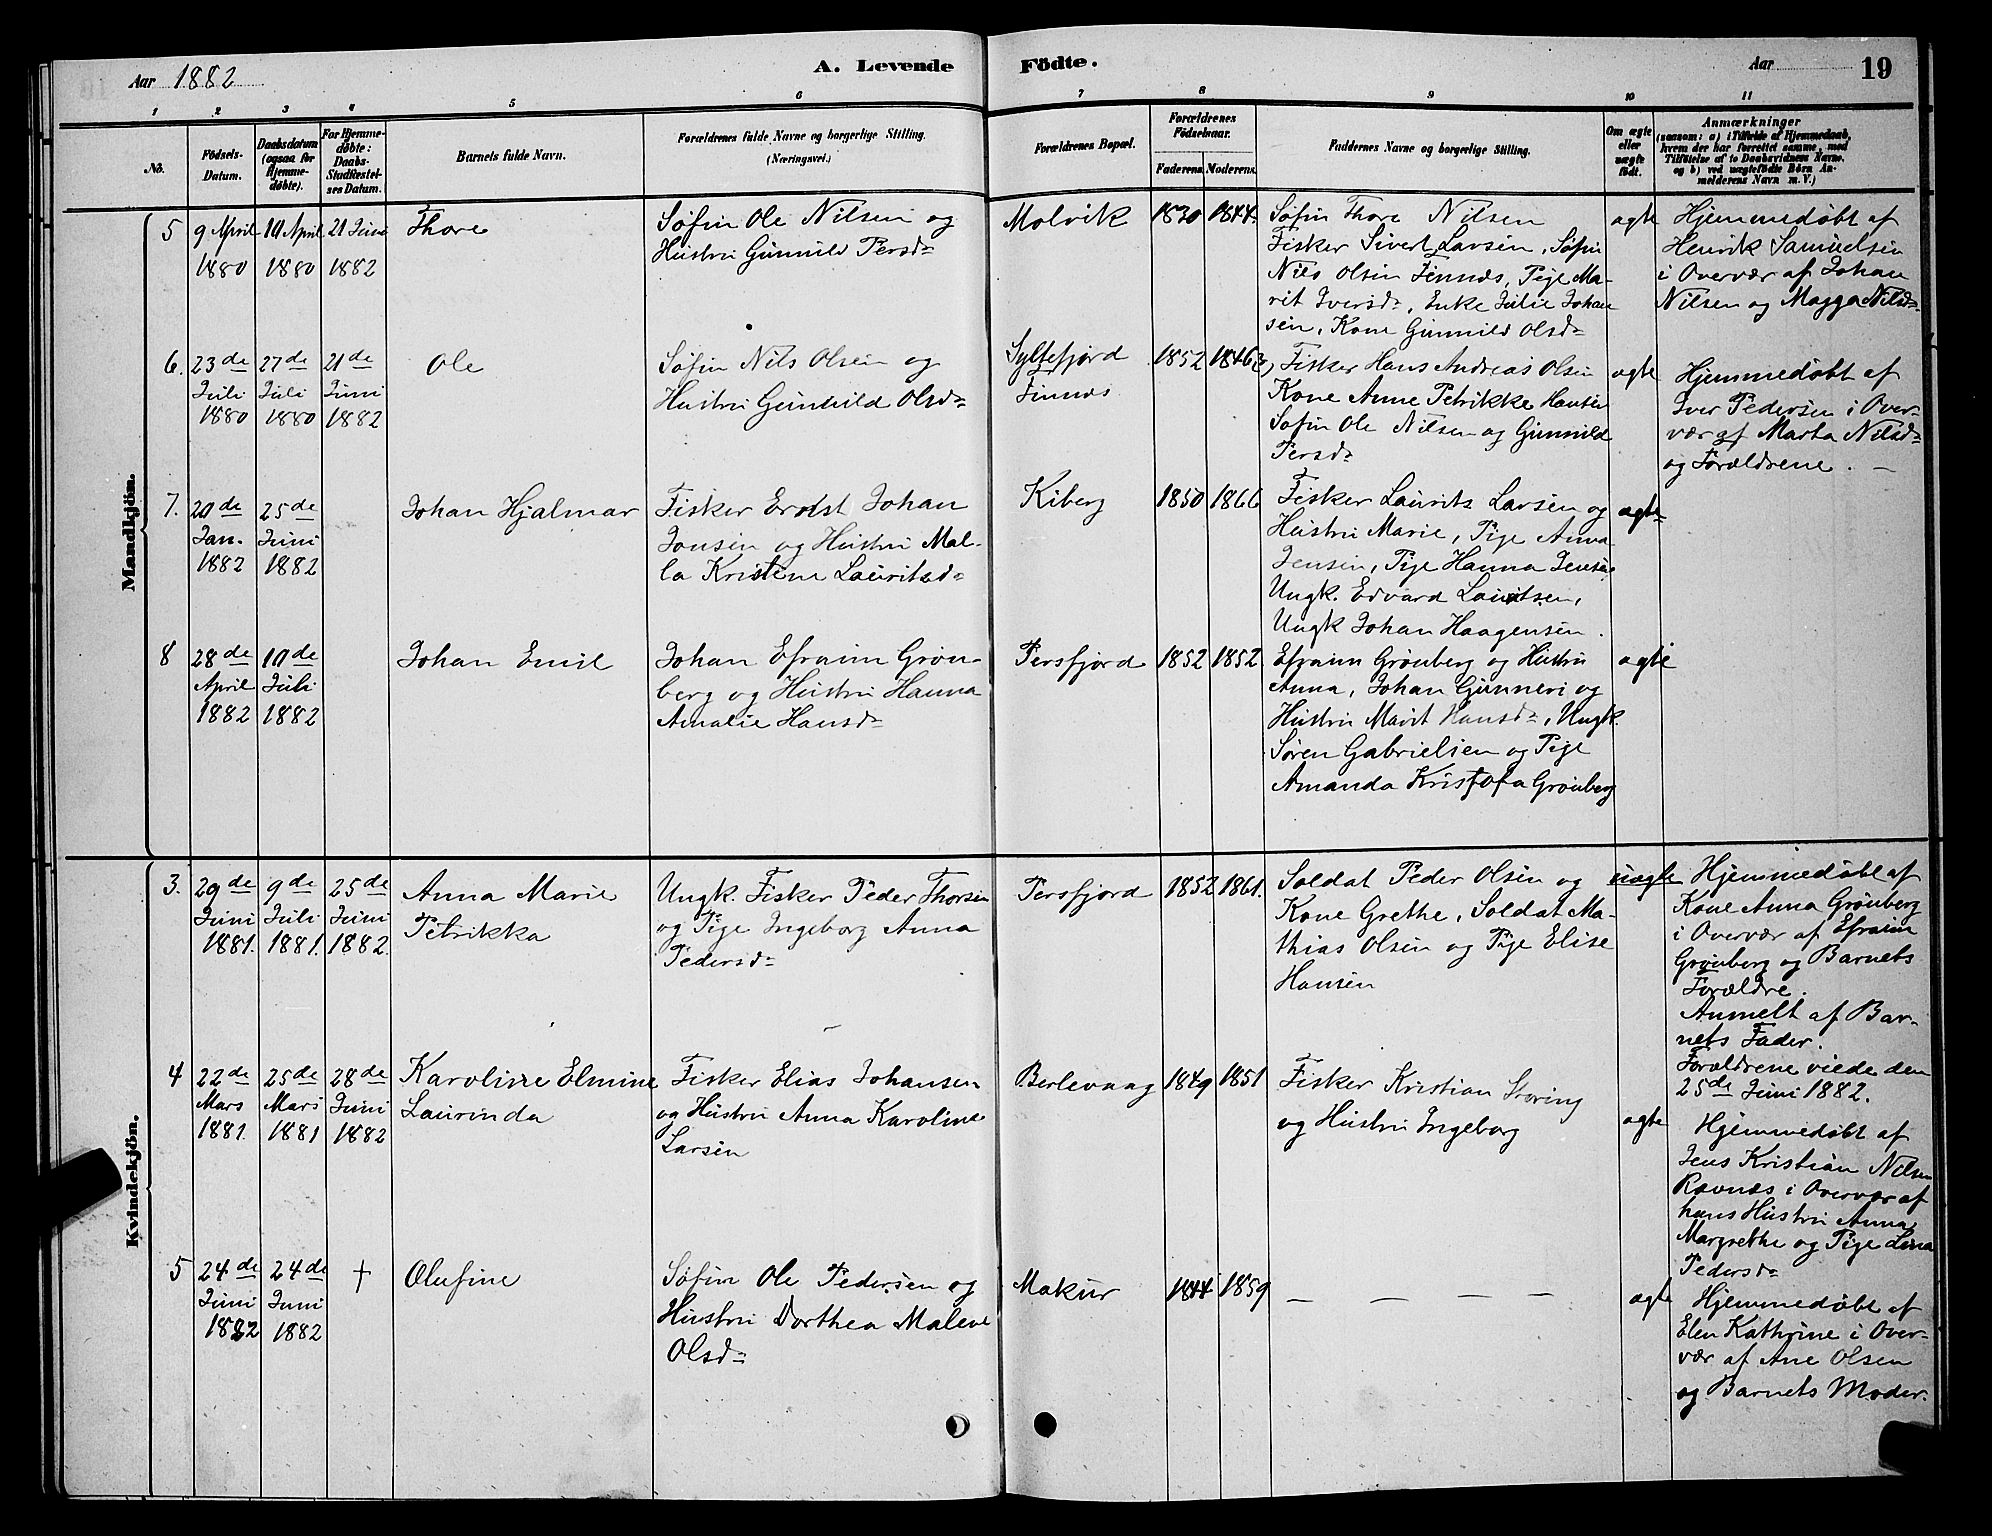 Aar 1882
A. Levende Födte.
Aar
19
1
2
3
4
5
6
7
8
9
10
11
No.
Födsels-
Datum.
Daabsdatum
(ogsaa for
Hjemme-
døbte).
For Hjemme-
døbte:
Daabs-
Stadfæstel-
ses Datum.
Barnets fulde Navn.
Forældrenes fulde Navne og borgerlige Stilling.
(Næringsvei.)
Forældrenes Bopæl.
Forældrenes
Födselsaar.
Faderens.
Moderens.
Faddernes Navne og borgerlige Stilling.
Om ægte
eller
uægte
födt.
Anmærkninger
(saasom: a) i Tilfælde af Hjemmedaab,
hvem der har forrettet samme, med
Tilföielse af to Daabsvidners Navne,
og b) ved uægtefödte Börn An-
melderens Navn m. V.)
Mandkjön.
5
9 April
1880
10 April
1880
21 Juni
1882
Thore
Søfin Ole Nilsen og
Hustru Gunnild Persd=
Molvik
1830
1844.
Søfin Thore Nilsen
Fisker Sivert Larsen, Søfin
Nils Olsen Finnæs, Pige Ma-
rit Iversd=, Enke Julie Johan
sen, Kone Gunnild Olsd=
ægte
Hjemmedøbt af
Henrik Samuelsen
i Overvær af Johan
Nilsen og Magga Nilsd=
6.
23de
Juli
1880
27de
Juli
1880
21de
Juni
1882
Ole
Søfin Nils Olsen og
Hustru Gunhild Olsd=
Syltefjord
Finnæs
1852
1846
Fisker Hans Andreas Olsen
Kone Anne Petrikke Hansen
Søfin Ole Nilsen og Gunnild
Persd=
ægte
Hjemmedøbt af
Iver Pedersen i Over-
vær af Marta Nilsd=
og Forældrene. —
7.
20de
Jan.
1882
25de
Juni
1882
Johan Hjalmar
Fisker Ernst Johan
Jonsen og Hustru Mal-
la Kristine Lauritsd=
Kiberg
1850
1866
Fisker Laurits Larsen og
Hustru Marie, Pige Anna
Jensen, Pige Hanna Jensen
Ungk. Edvard Lauritsen,
Ungk Johan Haagensen.
ægte
8
28de
April
1882
10de
Juli
1882
Johan Emil
Johan Efraim Grøn-
berg og Hustru Hanna
Amalie Hansd=
Persfjord
1852
1852
Efraim Grønberg og Hustru
Anna, Johan Gunneri og
Hustru Marit Hansd=, Ungk.
Søren Gabrielsen og Pige
Amanda Kristofa Grønberg
ægte
Kvindekjön.
3.
29de
Juni
1881.
9de
Juli
1881.
25de
Juni
1882.
Anna Marie
Petrikka
Ungk. Fisker Peder Thorsen
og Pige Ingeborg Anna
Pedersd=
Persfjord
1852
1861.
Soldat Peder Olsen og
Kone Grethe, Soldat Ma-
thias Olsen og Pige Elise
Hansen
uægte
Hjemmedøbt af
Kone Anna Grønberg
i Overvær af Efraim
Grønberg og Barnets
Forældre.
Anmelt af Bar-
nets Fader.
Forældrene viede den
25de Juni 1882.
4
22de
Mars
1881.
25de
Mars
1881
28de
Juni
1882
Karoline Elmine
Laurinda
Fisker Elias Johansen
og Hustru Anna Karoline
Larsen
Berlevaag
1849
1851
Fisker Kristian Storing
og Hustru Ingeborg
ægte
Hjemmedøbt af
Jens Kristian Nilsen
Ravnæs i Overvær af
hans Hustru Anna
Margrethe og Pige Lina
Pedersd=
5
24de
Juni
1882
24de
Juni
1882
†
Olufine
Søfin Ole Pedersen og
Hustru Dorthea Malene
Olsd=
Makur
1844
1859
— — — —
ægte
Hjemmedøbt af
Elen Kathrine i Over-
vær af Ane Olsen
og Barnets Moder.